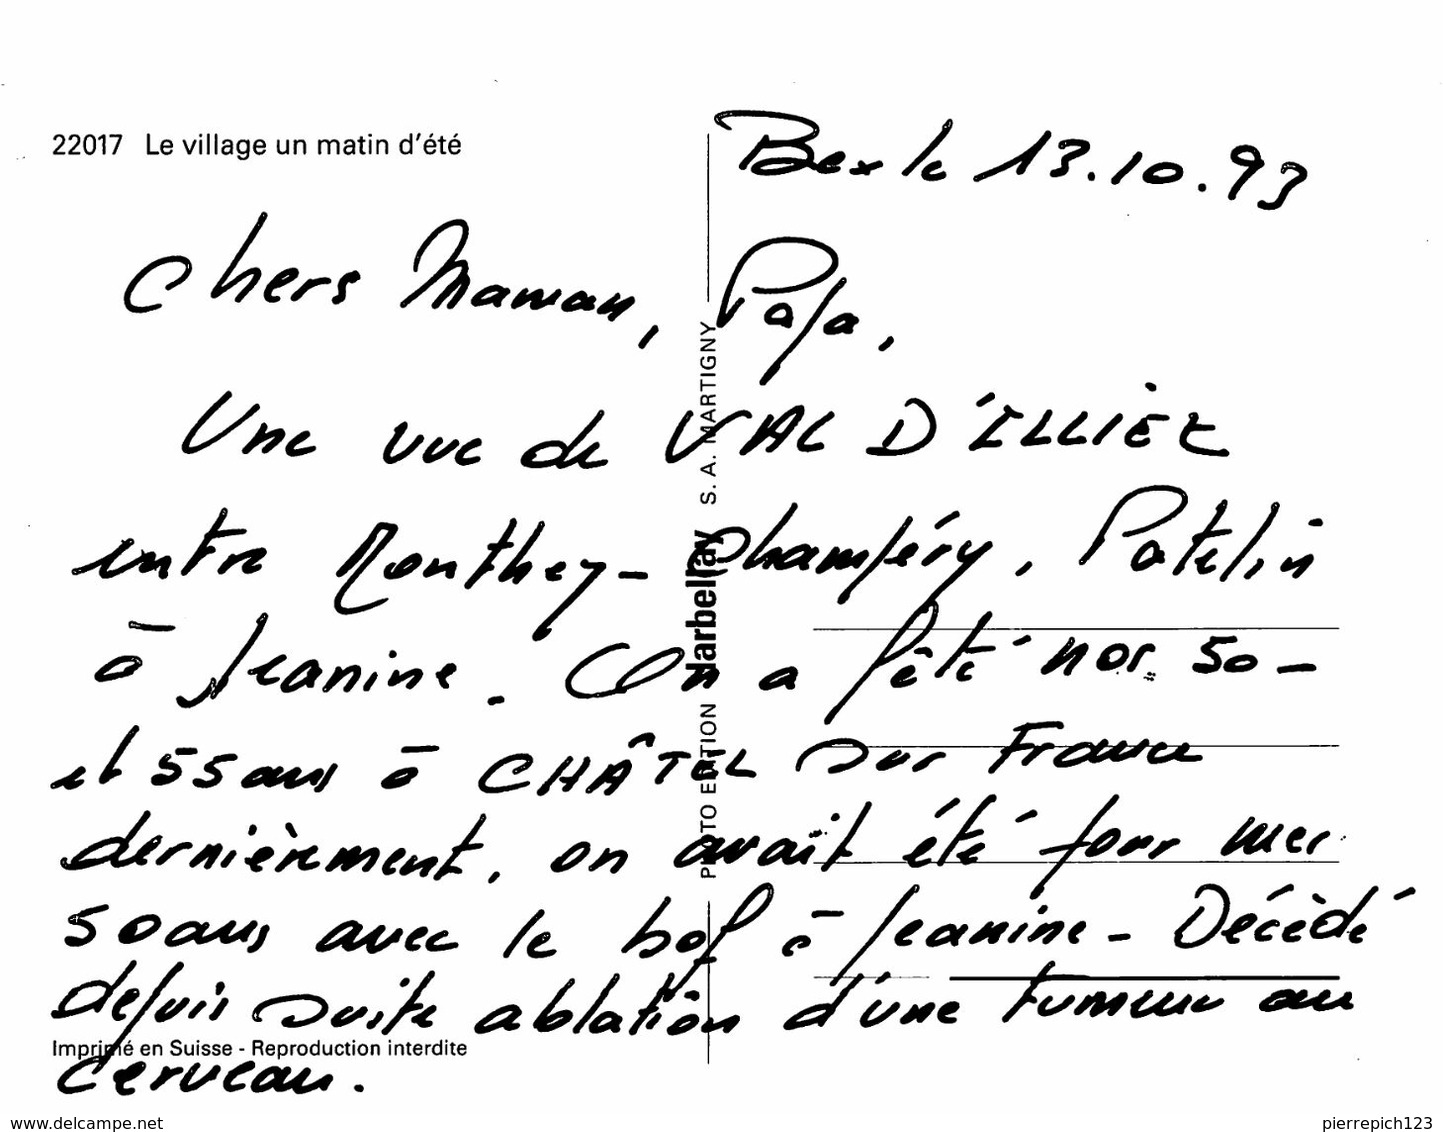 22017 Le village un matin d'été
Bex le 13.10.93
Chers Maman, Papa,
Une vue de VAL D'ILLIÈZ
entre Monthey - Champéry, Patelin
à Jeanine. On a fêté nos 50 -
et 55 ans à CHÂTEL sur France
dernièrement, on avait été pour mes
50 ans avec le bof à Jeanine - Décèdé
depuis suite ablation d'une tumeur au
cerveau.
Imprimé en Suisse - Reproduction interdite
PHOTO EDITION Darbellay S. A. MARTIGNY
www.delcampe.net
pierrepich123